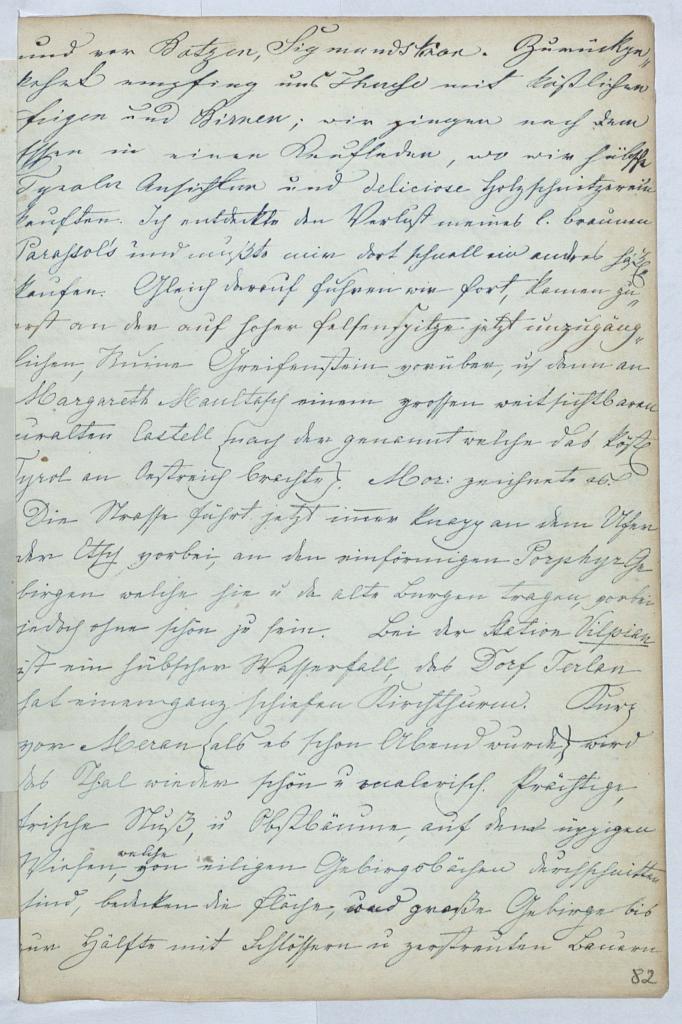 und vor Botzen, Sigmundskron. Zurückge„
kehrt empfing uns Therese mit köstlichen
Feigen und Birnen; wir gingen nach dem
Essen in einen Kaufladen, wo wir hübsche
Tyroler Ansichten und deliciose Holzschnitzereien
kauften. Ich entdeckte den Verlust meines l. braunen
Parassol's und mußte mir dort schnell ein andres
kaufen. Gleich darauf fuhren wir fort, kamen zu„
erst an der auf hoher Felsenspitze jetzt unzugäng„
lichen, Ruine Greifenstein vorüber, u dann an
Margareth Maultasch einem grossen weitsichtbaren
uralten Castell (nach der genannt welche das
Tyrol an Oestreich brachte). Mor: zeichnete es.
Die Strasse führt jetzt imer knapp an dem Ufer
der Etsch vorbei, an den einförmigen Porphyr Ge
birgen welche hie u da alte Burgen tragen, vorbei
jedoch ohne schön zu sein. Bei der Station Vilpian
ist ein hübscher Wasserfall, das Dorf Terlan
hat einen ganz schiefen Kirchthurm. Kurz
vor Meran (als es schon Abend wurde) wird
das Thal wieder schön u malerisch. Prächtige,
frische Nuß, u Obstbäume, auf den üppigen
Wiesen, welche von eiligen Gebirgsbächen durchschnitten
sind, bedecken die Fläche, und große Gebirge bis
zur Hälfte mit Schlössern u zerstreuten Bauern
82